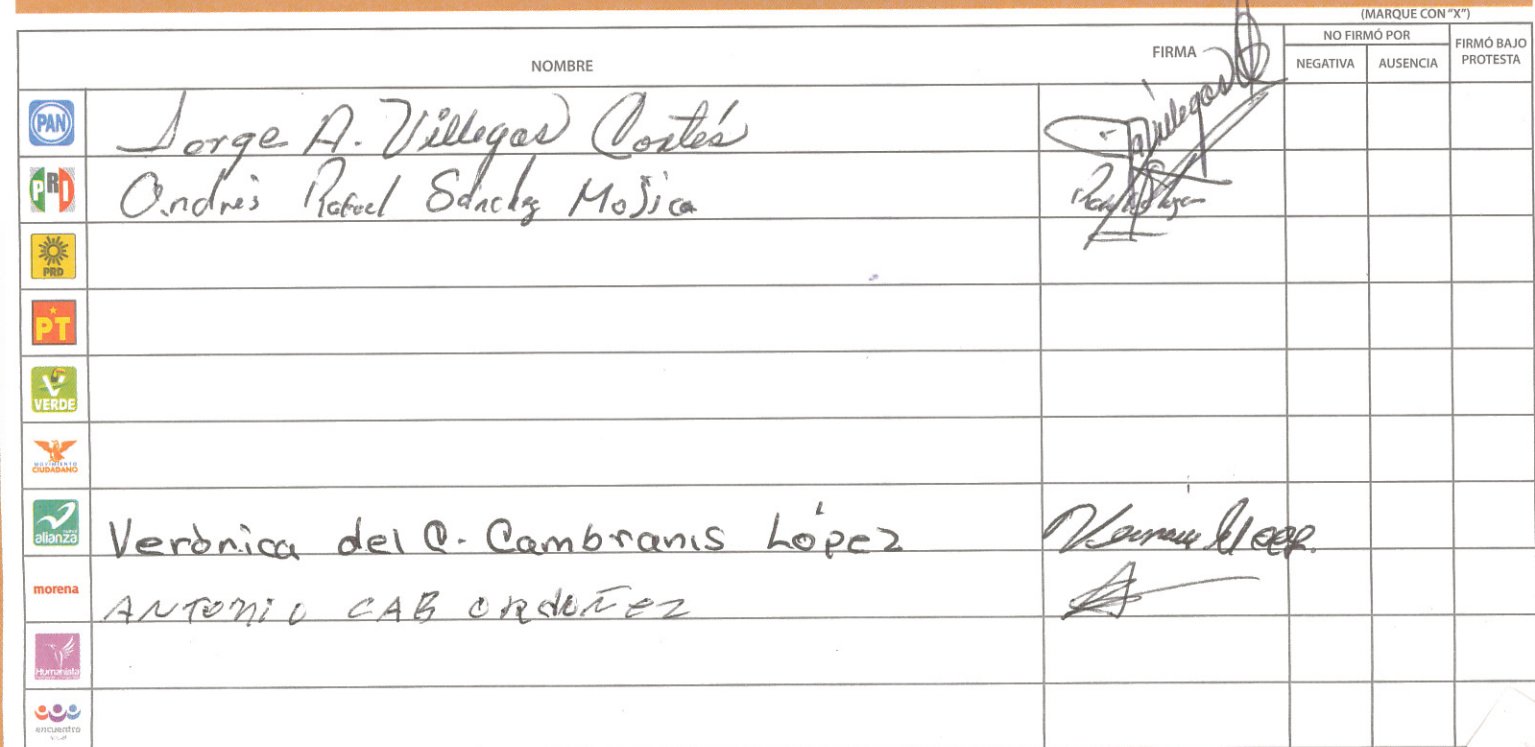 (MARQUE CON "X")
NOMBRE
FIRMA
NO FIRMÓ POR
NEGATIVA
AUSENCIA
FIRMÓ BAJO PROTESTA
PAN
Jorge A. Villegas Cortés
PRI
Andrés Rafael Sánchez Mojica
PRD
PT
VERDE
MOVIMIENTO
CIUDADANO
nueva
alianza
Verònica del C. Cambranis López
morena
ANTONIO CAB ORDOÑEZ
Humanista
encuentro